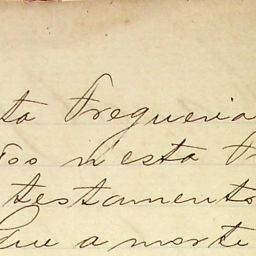 ta Fregueria
tos n'esta
testamento
Que a morte